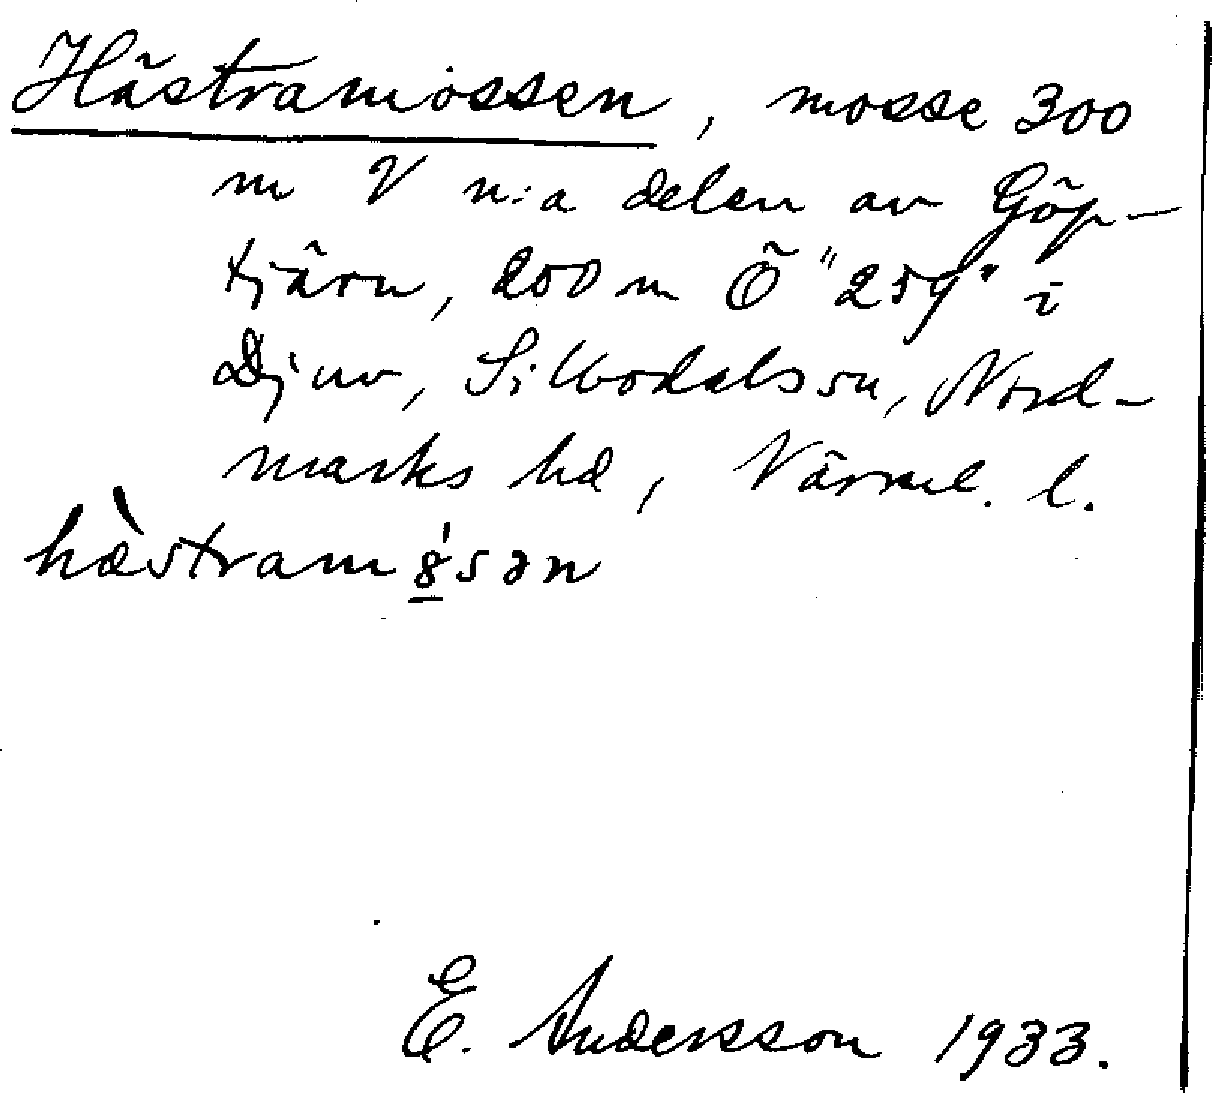 Hästramossen, mosse 300
m V n:a delen av Göp-
tjärn, 200 m Ö "259" i
Djuv, Silbodals sn, Nord-
marks hd, Värml. l.
hæ̀stramọ̈́sən
E. Andersson 1933.